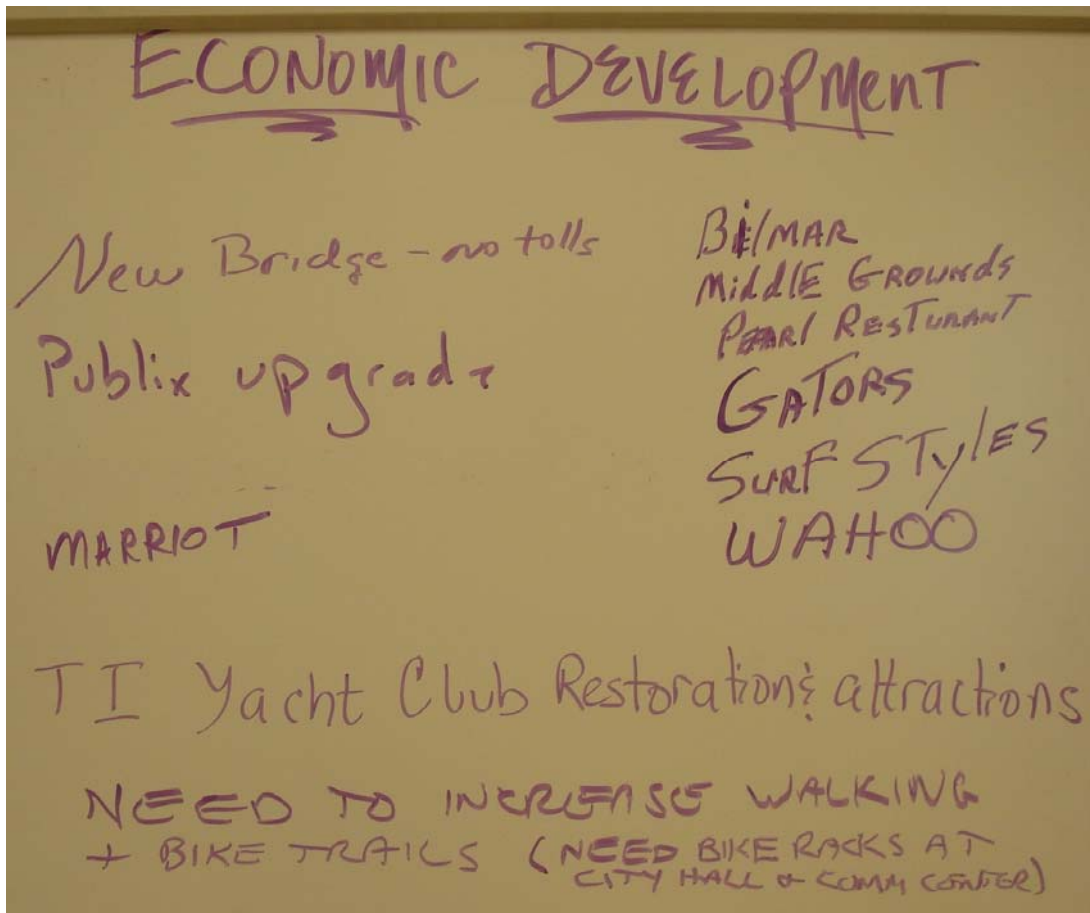 ECONOMIC DEVELOPMENT
New Bridge - no tolls
Publix upgrade
MARRIOT
Bilmar
Middle Grounds
Pearl Resturant
GATORS
SURF STyles
WAHOO
TI Yacht Club Restoration & attractions
NEED TO INCREASE WALKING
+ BIKE TRAILS (NEED BIKE RACKS AT
CITY HALL & COMM CENTER)